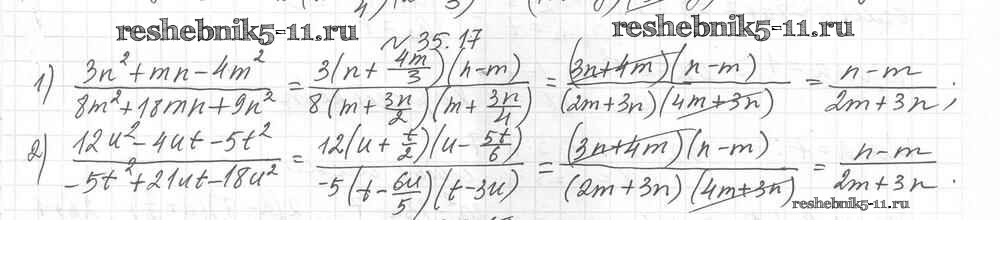 reshebnik5-11.ru
reshebnik5-11.ru
№ 35.17
1) (3n² + mn - 4m²)/(8m² + 18mn + 9n²) = 3(n + 4m/3)(n - m)/8(m + 3n/2)(m + 3n/4) = (3n + 4m)(n - m)/(2m + 3n)(4m + 3n) = (n - m)/(2m + 3n);
2) (12u² - 4ut - 5t²)/(-5t² + 21ut - 18u²) = 12(u + t/2)(u - 5t/6)/-5(t - 6u/5)(t - 3u) = (3n + 4m)(n - m)/(2m + 3n)(4m + 3n) = (n - m)/(2m + 3n).
reshebnik5-11.ru